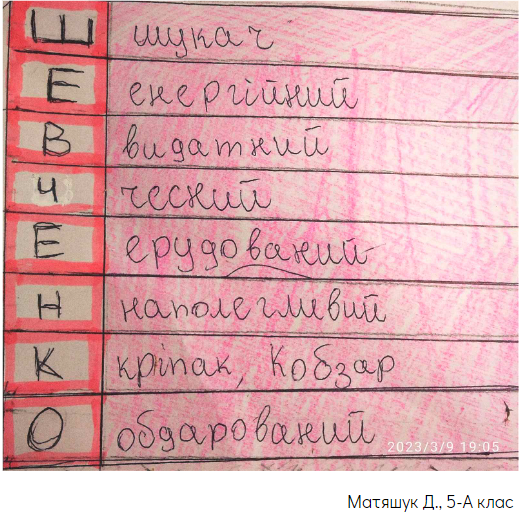 Ш шукач
Е енергійний
В видатний
Ч чесний
Е ерудований
Н наполегливий
К кріпак, Кобзар
О обдарований
2023/3/9 19:05
Матяшук Д., 5-А клас